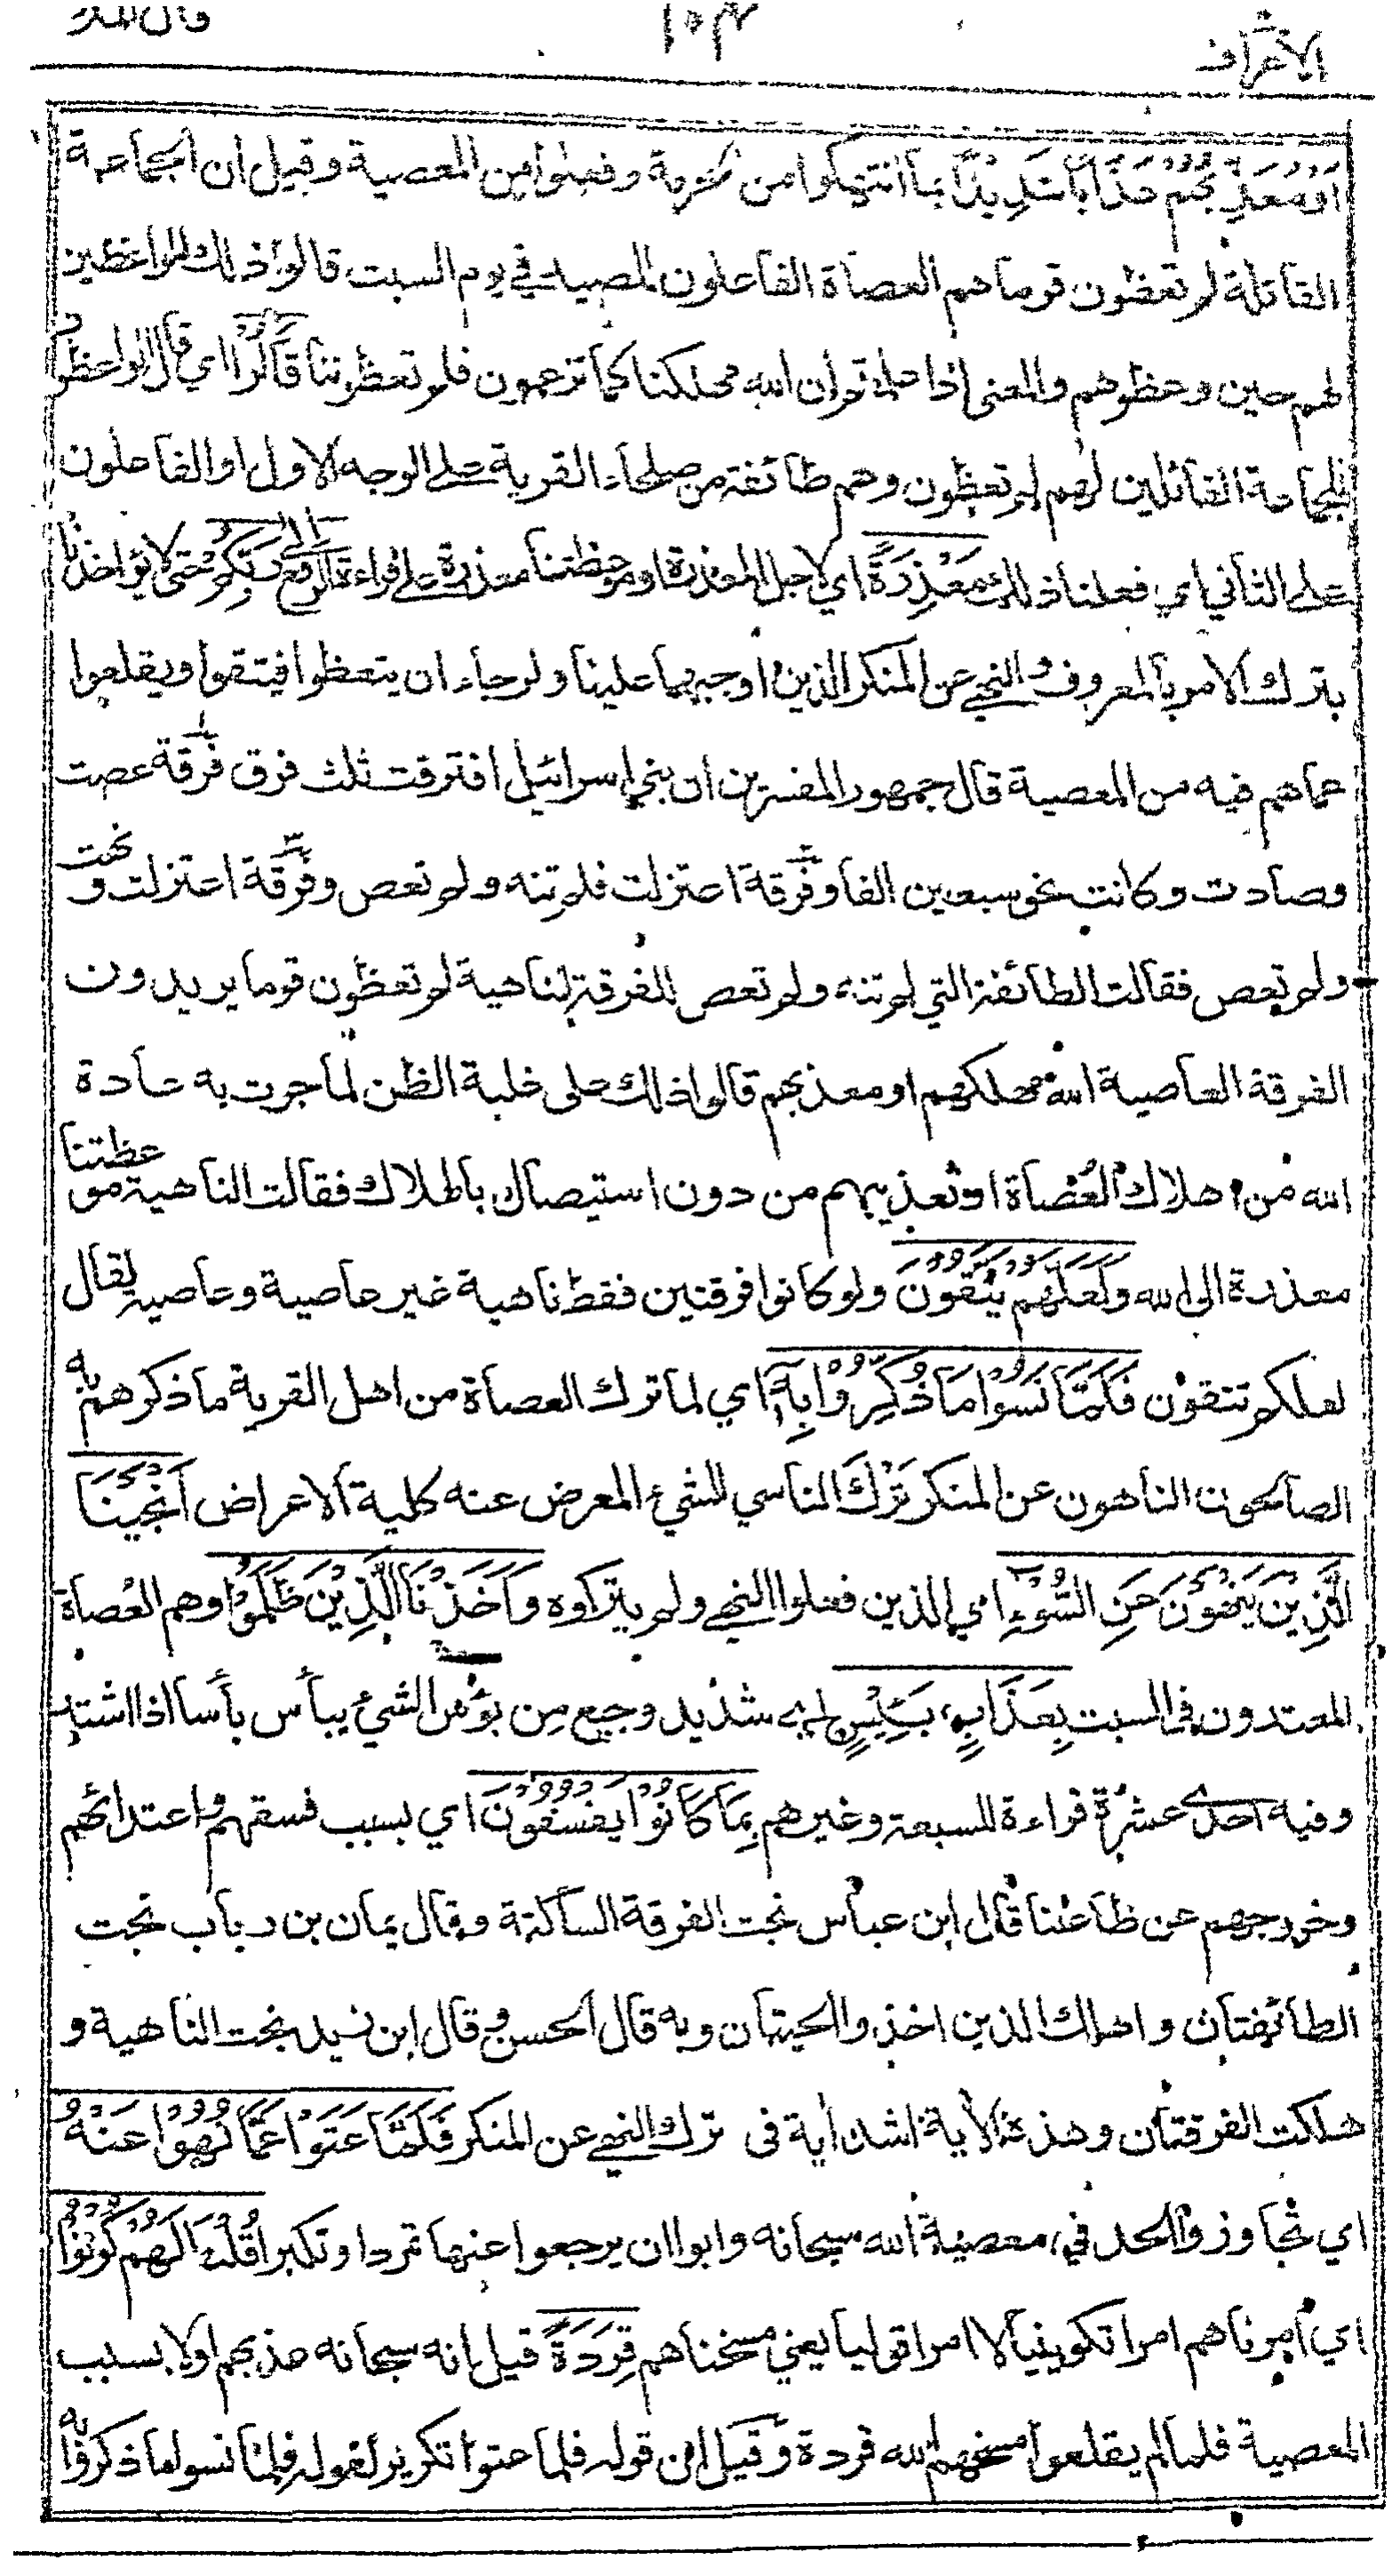 قال الملأ
١٠٣
الاعراف
اَوْ مُعَذِّبُهُمْ عَذَابًا شَدِيْدًا بما انتهكوا من الحرمة وفعلوا من المعصية وقيل ان الجماعة
القائلة لم تعظون قوما هم العصاة الفاعلون للصيد في يوم السبت قالوا ذلك للواعظين
لهم حين وعظوهم والمعنى اذا علمتم ان الله مهلكنا كما تزعمون فلم تعظوننا قَالُوْا اي قال الواعظون
للجماعة القائلين لهم لم تعظون وهم طائفة من صلحاء القرية على الوجه الاول او الفاعلون
على الثاني اي فعلنا ذلك مَعْذِرَةً اي لاجل المعذرة او موعظتنا معذرة على قراءة الرفع اِلٰى رَبِّكُمْ حتى لا يؤاخذنا
بترك الامر بالمعروف والنهي عن المنكر الذين اوجبهما علينا ولرجاء ان يتعظوا فيتقوا ويقلعوا
عما هم فيه من المعصية قال جمهور المفسرين ان بني اسرائيل افترقت ثلث فرق فرقة عصت
وصادت وكانت نحو سبعين الفا وفرقة اعتزلت فلم تنه ولم تعص وفرقة اعتزلت ونهت
ولم تعص فقالت الطائفة التي لم تنه ولم تعص للفرقة الناهية لم تعظون قوما يريدون
الفرقة العاصية الله مهلكهم او معذبهم قالوا ذلك على غلبة الظن لما جرت به عادة
الله من اهلاك العُصاة او تعذيبهم من دون استيصال بالهلاك فقالت الناهية موعظتنا
معذرة الى الله وَلَعَلَّهُمْ يَتَّقُوْنَ ولو كانوا فرقتين فقط ناهية غير عاصية وعاصية لقال
لعلكم تتقون فَلَمَّا نَسُوْا مَا ذُكِّرُوْا بِهٖ اي لما ترك العصاة من اهل القرية ما ذكرهم به
الصالحون الناهون عن المنكر تَرْكَ الناسي للشيء المعرض عنه كلية الاعراض اَنْجَيْنَا
الَّذِيْنَ يَنْهَوْنَ عَنِ السُّوْءِ اي الذين فعلوا النهي ولم يتركوه وَاَخَذْنَا الَّذِيْنَ ظَلَمُوْا وهم العُصاة
المعتدون في السبت بِعَذَابٍ بَئِيْسٍ اي شديد وجيع من بؤس الشيء يبأس بأسا اذا اشتد
وفيه احدى عشرة قراءة للسبعة وغيرهم بِمَا كَانُوْا يَفْسُقُوْنَ اي بسبب فسقهم واعتدائهم
وخروجهم عن طاعتنا قال ابن عباس نجت الفرقة الساكتة وقال يمان بن رباب نجت
الطائفتان واهلك الذين اخذوا الحيتان وبه قال الحسن وقال ابن زيد نجت الناهية و
هلكت الفرقتان وهذه الأية اشد أية في ترك النهي عن المنكر فَلَمَّا عَتَوْا عَمَّا نُهُوْا عَنْهُ
اي تجاوزوا الحد في معصية الله سبحانه وابوا ان يرجعوا عنها تمردا وتكبرا قُلْنَا لَهُمْ كُوْنُوْا
اي امرناهم امرا تكوينيا لا امرا قوليا يعني مسخناهم قِرَدَةً قيل انه سبحانه عذبهم اولا بسبب
المعصية فلما لم يقلعوا مسخهم الله قردة وقيل ان قوله فلما عتوا تكرير لقوله فلما نسوا ما ذكروا به